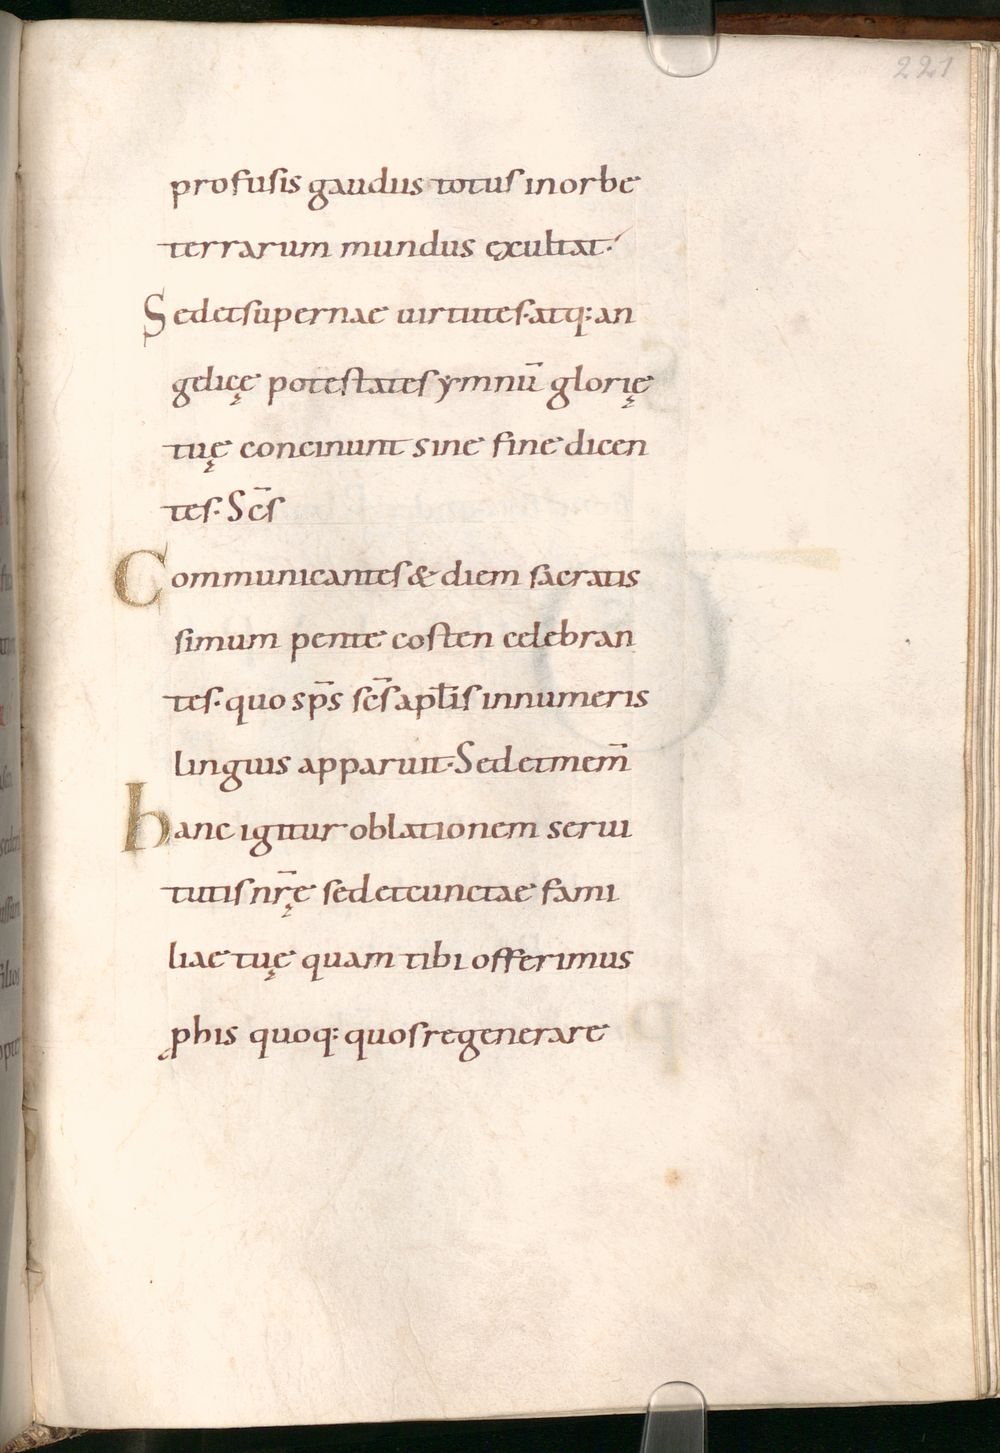 221
profusis gaudiis totus in orbe
terrarum mundus exultat·
Sed et supernae uirtutes· atq: an
gelicę potestates ymnū glorię
tuę concinunt sine fine dicen
tes· Sc̄s
Communicantes & diem sacratis
simum pente costen celebran
tes· quo sp̄s sc̄s aptl̄is innumeris
linguis apparuit· Sed et mem̄
hanc igitur oblationem serui
tutis nr̄ę sed et cunctae fami
liae tuę quam tibi offerimus
ꝓ his quoq: quos regenerare